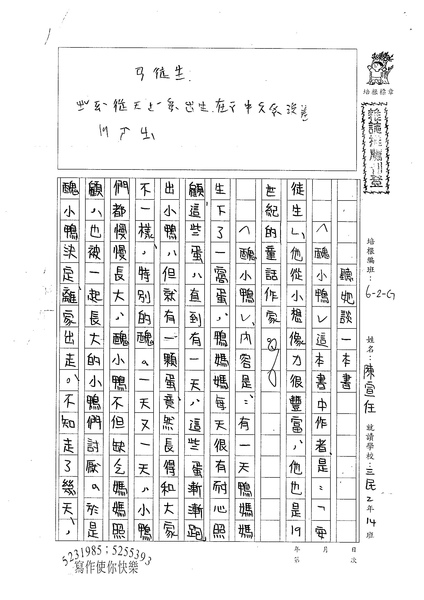 培根標章
培根編班：6-2-G 姓名：陳宣任 就讀學校：三民2年14班
日次
月
年第
聽她談一本書
〈醜小鴨〉這本書中作者是：「安
徒生」，他從小想像力很豐富，他也是19
世紀的童話作家。
〈醜小鴨〉，內容是：有一天鴨媽媽
生下了一窩蛋，鴨媽媽每天很有耐心照
顧這些蛋，直到有一天，這些蛋漸漸跑
出小鴨，但就有一顆蛋竟然長得和大家
不一樣，特別的醜。一天又一天，小鴨
們都慢慢長大，醜小鴨不但缺乏媽媽照
顧，也被一起長大的小鴨們討厭。於是
醜小鴨決定離家出走。不知走了幾天，
5231985；5255393
寫作使你快樂